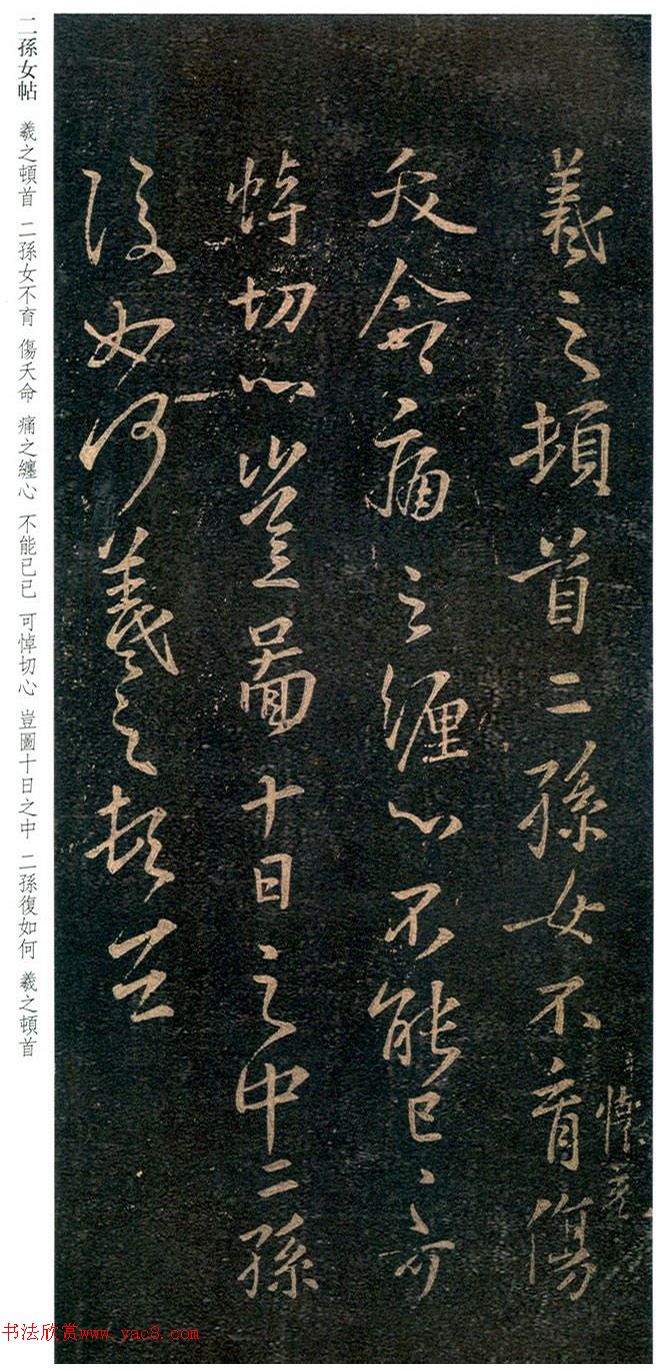 羲之頓首二孫女不育傷
夭命痛之纏心不能已已可
悼切心豈圖十日之中二孫
復如何羲之頓首
二孫女帖 羲之頓首 二孫女不育 傷夭命 痛之纏心 不能已已 可悼切心 豈圖十日之中 二孫復如何 羲之頓首
书法欣赏www.yac8.com